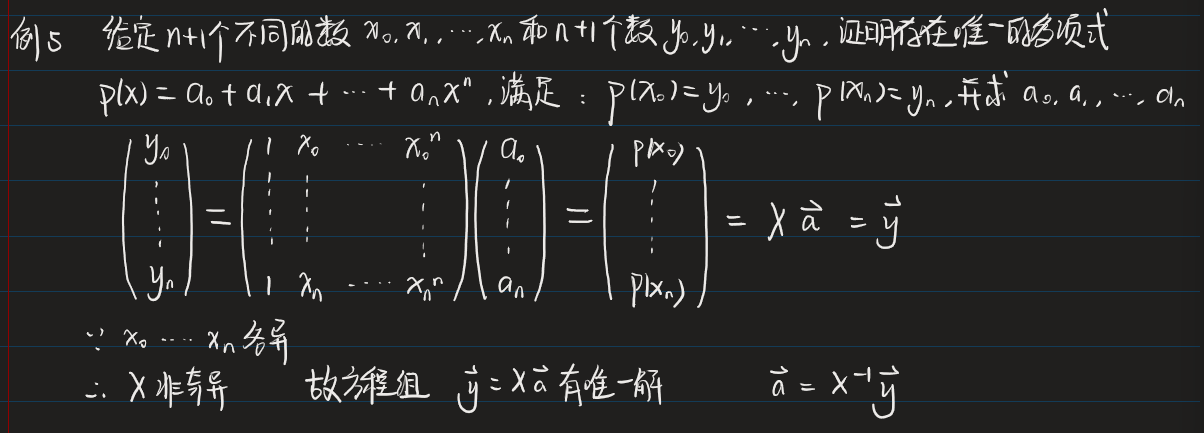 例5 给定n+1个不同的数 x₀, x₁, ⋯, xₙ 和 n+1个数 y₀, y₁, ⋯, yₙ, 证明存在唯一的多项式
p(x) = a₀ + a₁x + ⋯ + aₙxⁿ, 满足: p(x₀)=y₀, ⋯, p(xₙ)=yₙ, 并求 a₀, a₁, ⋯, aₙ
(y₀ ⋮ yₙ) = (1 x₀ ⋯ x₀ⁿ ⋮ ⋮ ⋮ 1 xₙ ⋯ xₙⁿ)(a₀ ⋮ aₙ) = (p(x₀) ⋮ p(xₙ)) = X a⃗ = y⃗
∵ x₀ ⋯ xₙ 各异
∴ X非奇异 故方程组 y⃗ = Xa⃗ 有唯一解 a⃗ = X⁻¹y⃗